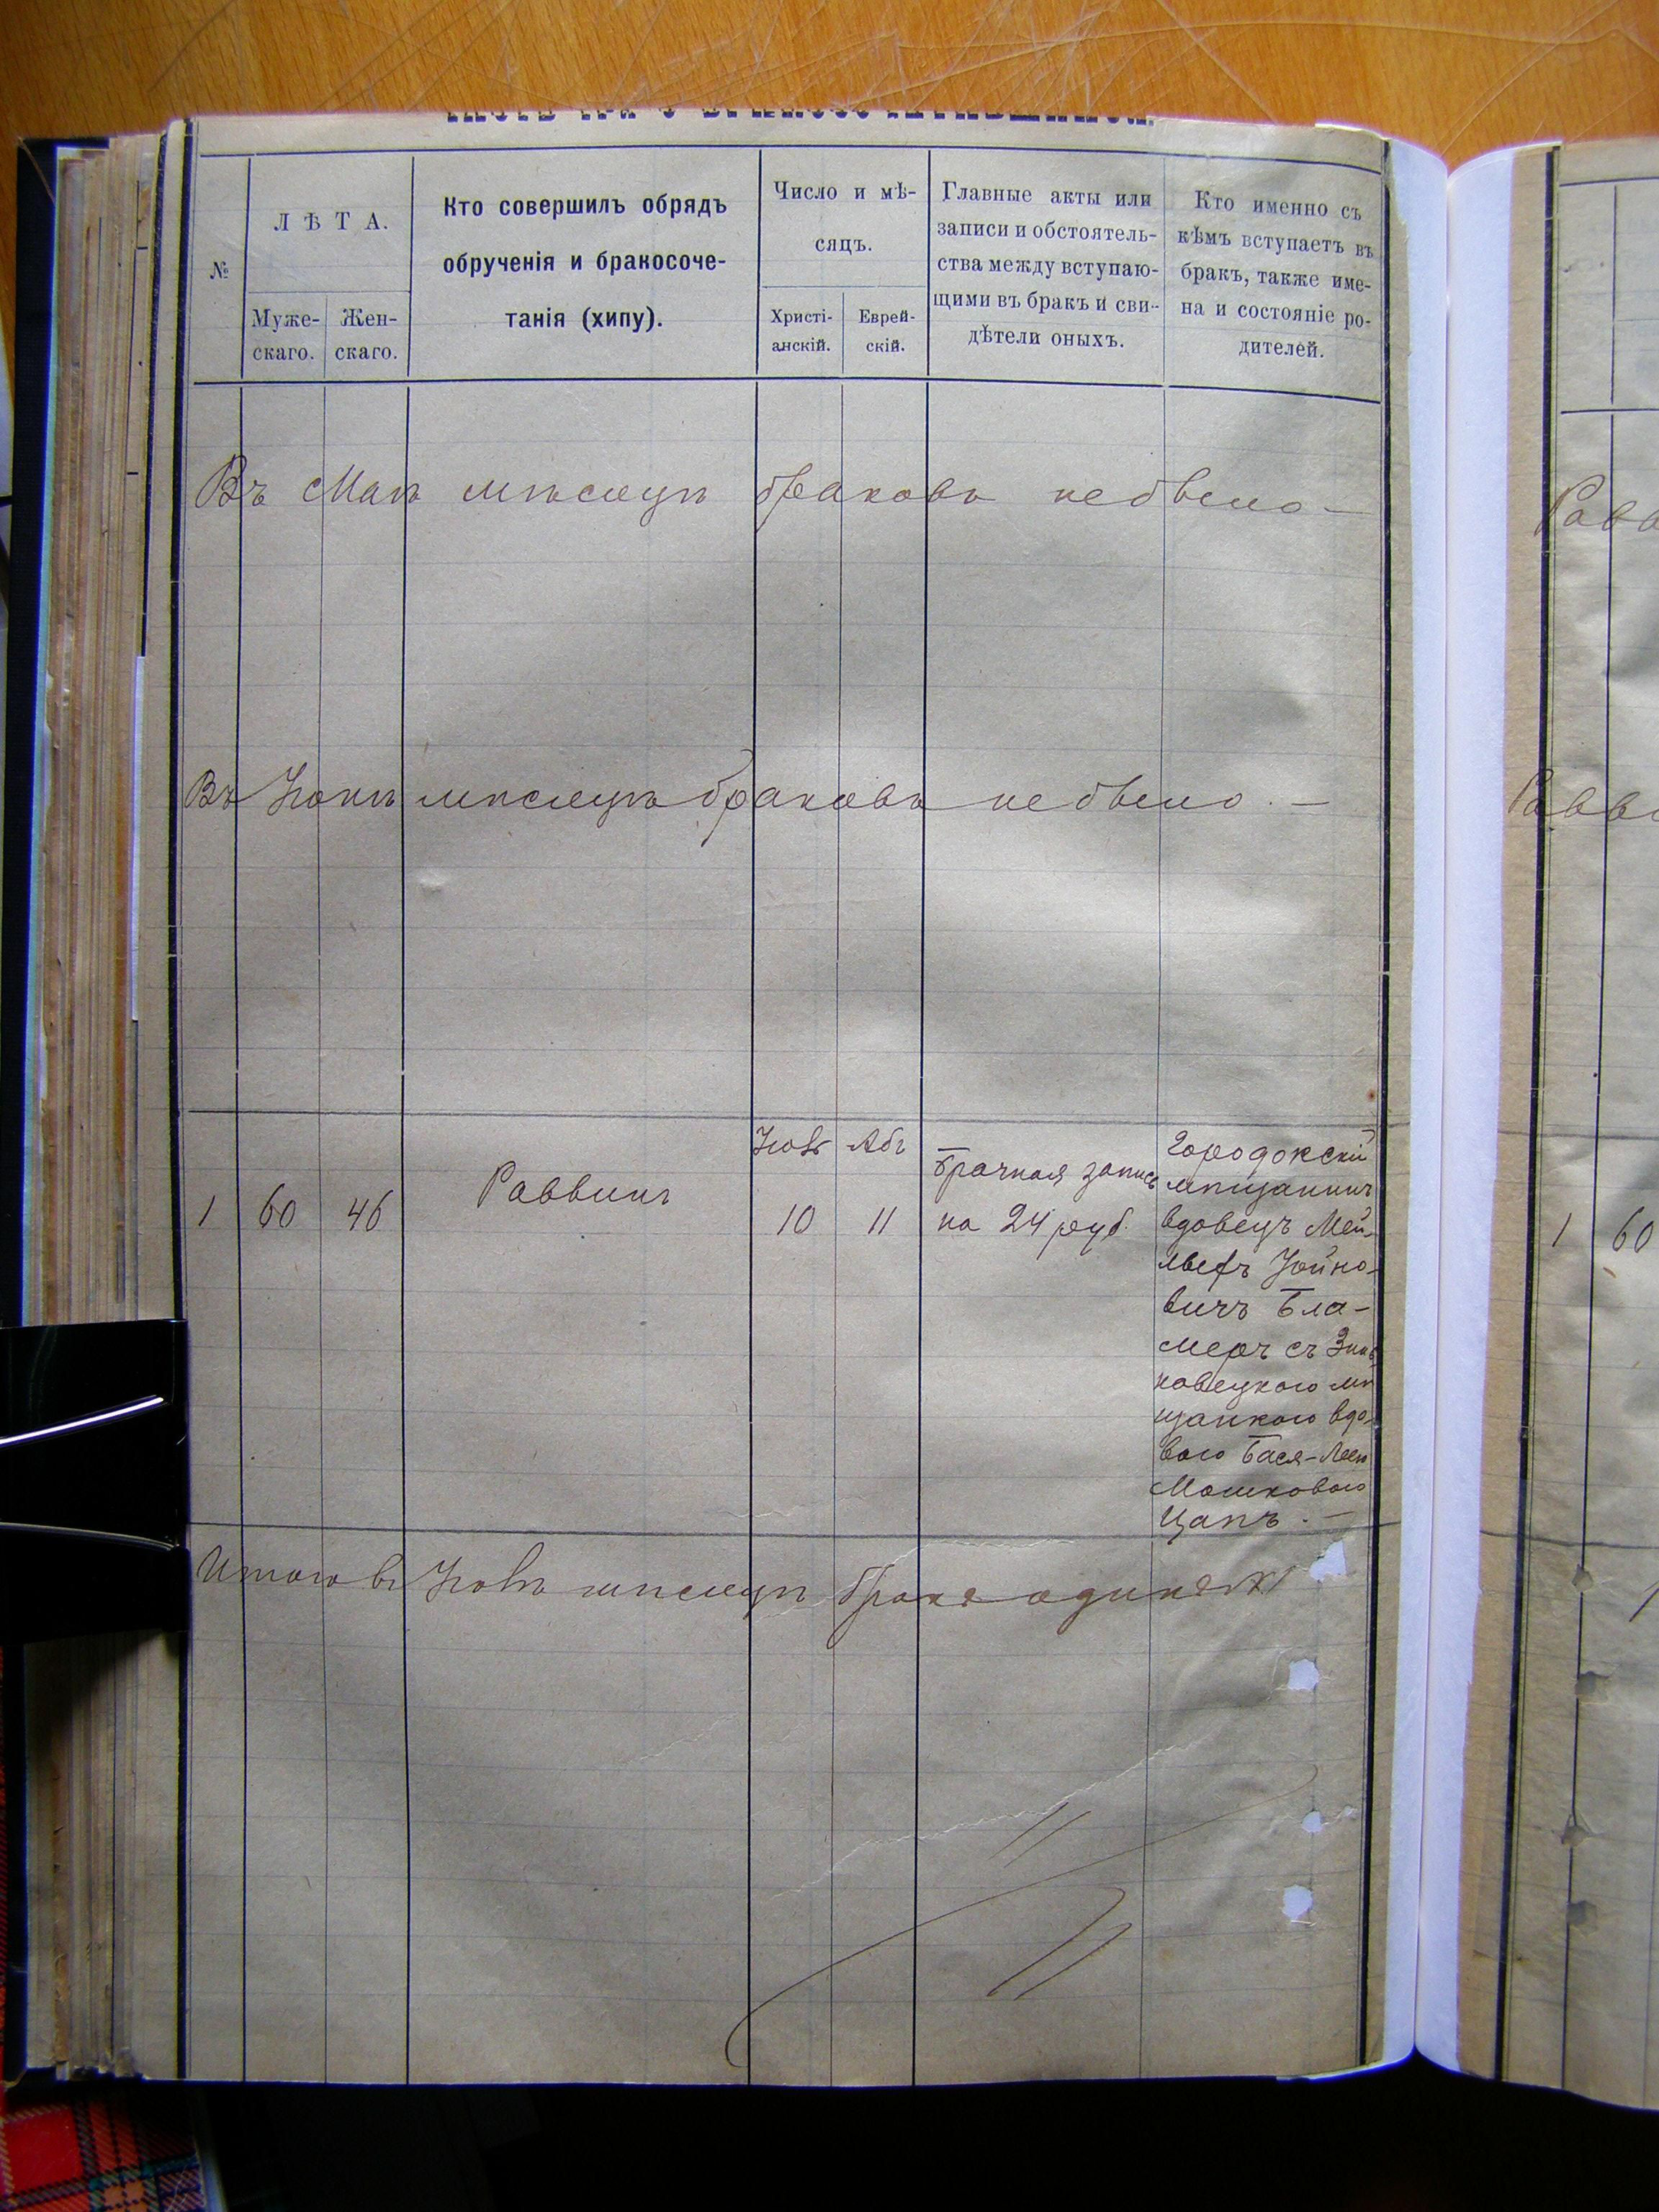 №
ЛѢТА.
Муже-
скаго.
Жен-
скаго.
Кто совершилъ обрядъ
обрученія и бракосоче-
танія (хипу).
Число и мѣ-
сяцъ.
Христі-
анскій.
Еврей-
скій.
Главные акты или
записи и обстоятель-
ства между вступаю-
щими въ бракъ и сви-
дѣтели оныхъ.
Кто именно съ
кѣмъ вступаетъ въ
бракъ, также име-
на и состояніе ро-
дителей.
Въ Маѣ мѣсецѣ браковъ не было —
Въ Іюнѣ мѣсецѣ браковъ не было. —
1 60 46
Раввинъ
10
11
Брачная запись
на 24 руб.
Городокскій
мѣщанинъ
вдовецъ Мей-
Бла-
меръ съ
новецкою мѣ
щанкою вдо-
вою Бася-Лея
Мошковою
Цапъ. —
Итого въ мѣсецѣ
1 60